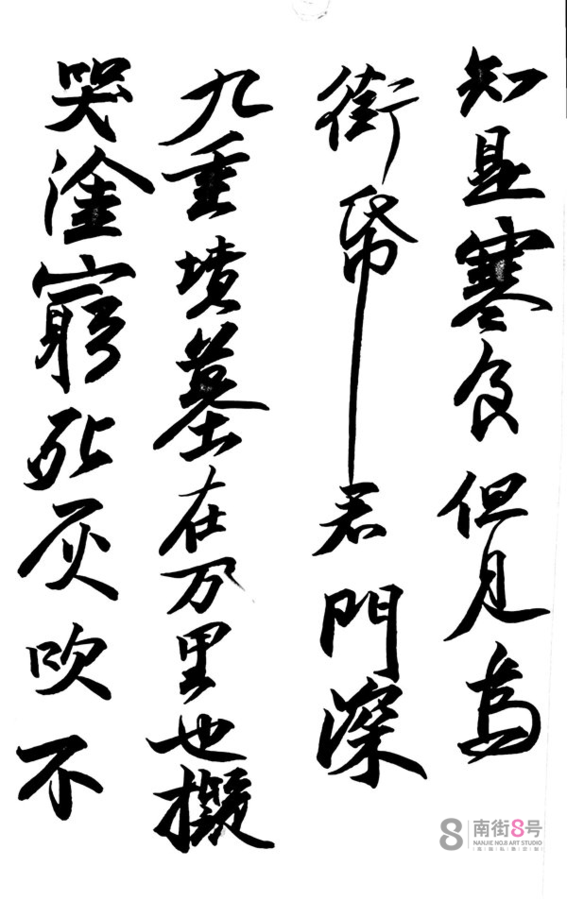 知是寒食但見烏
銜帋君門深
九重墳墓在万里也擬
哭塗窮死灰吹不
8 南街8号
NANJIE NO.8 ART STUDIO